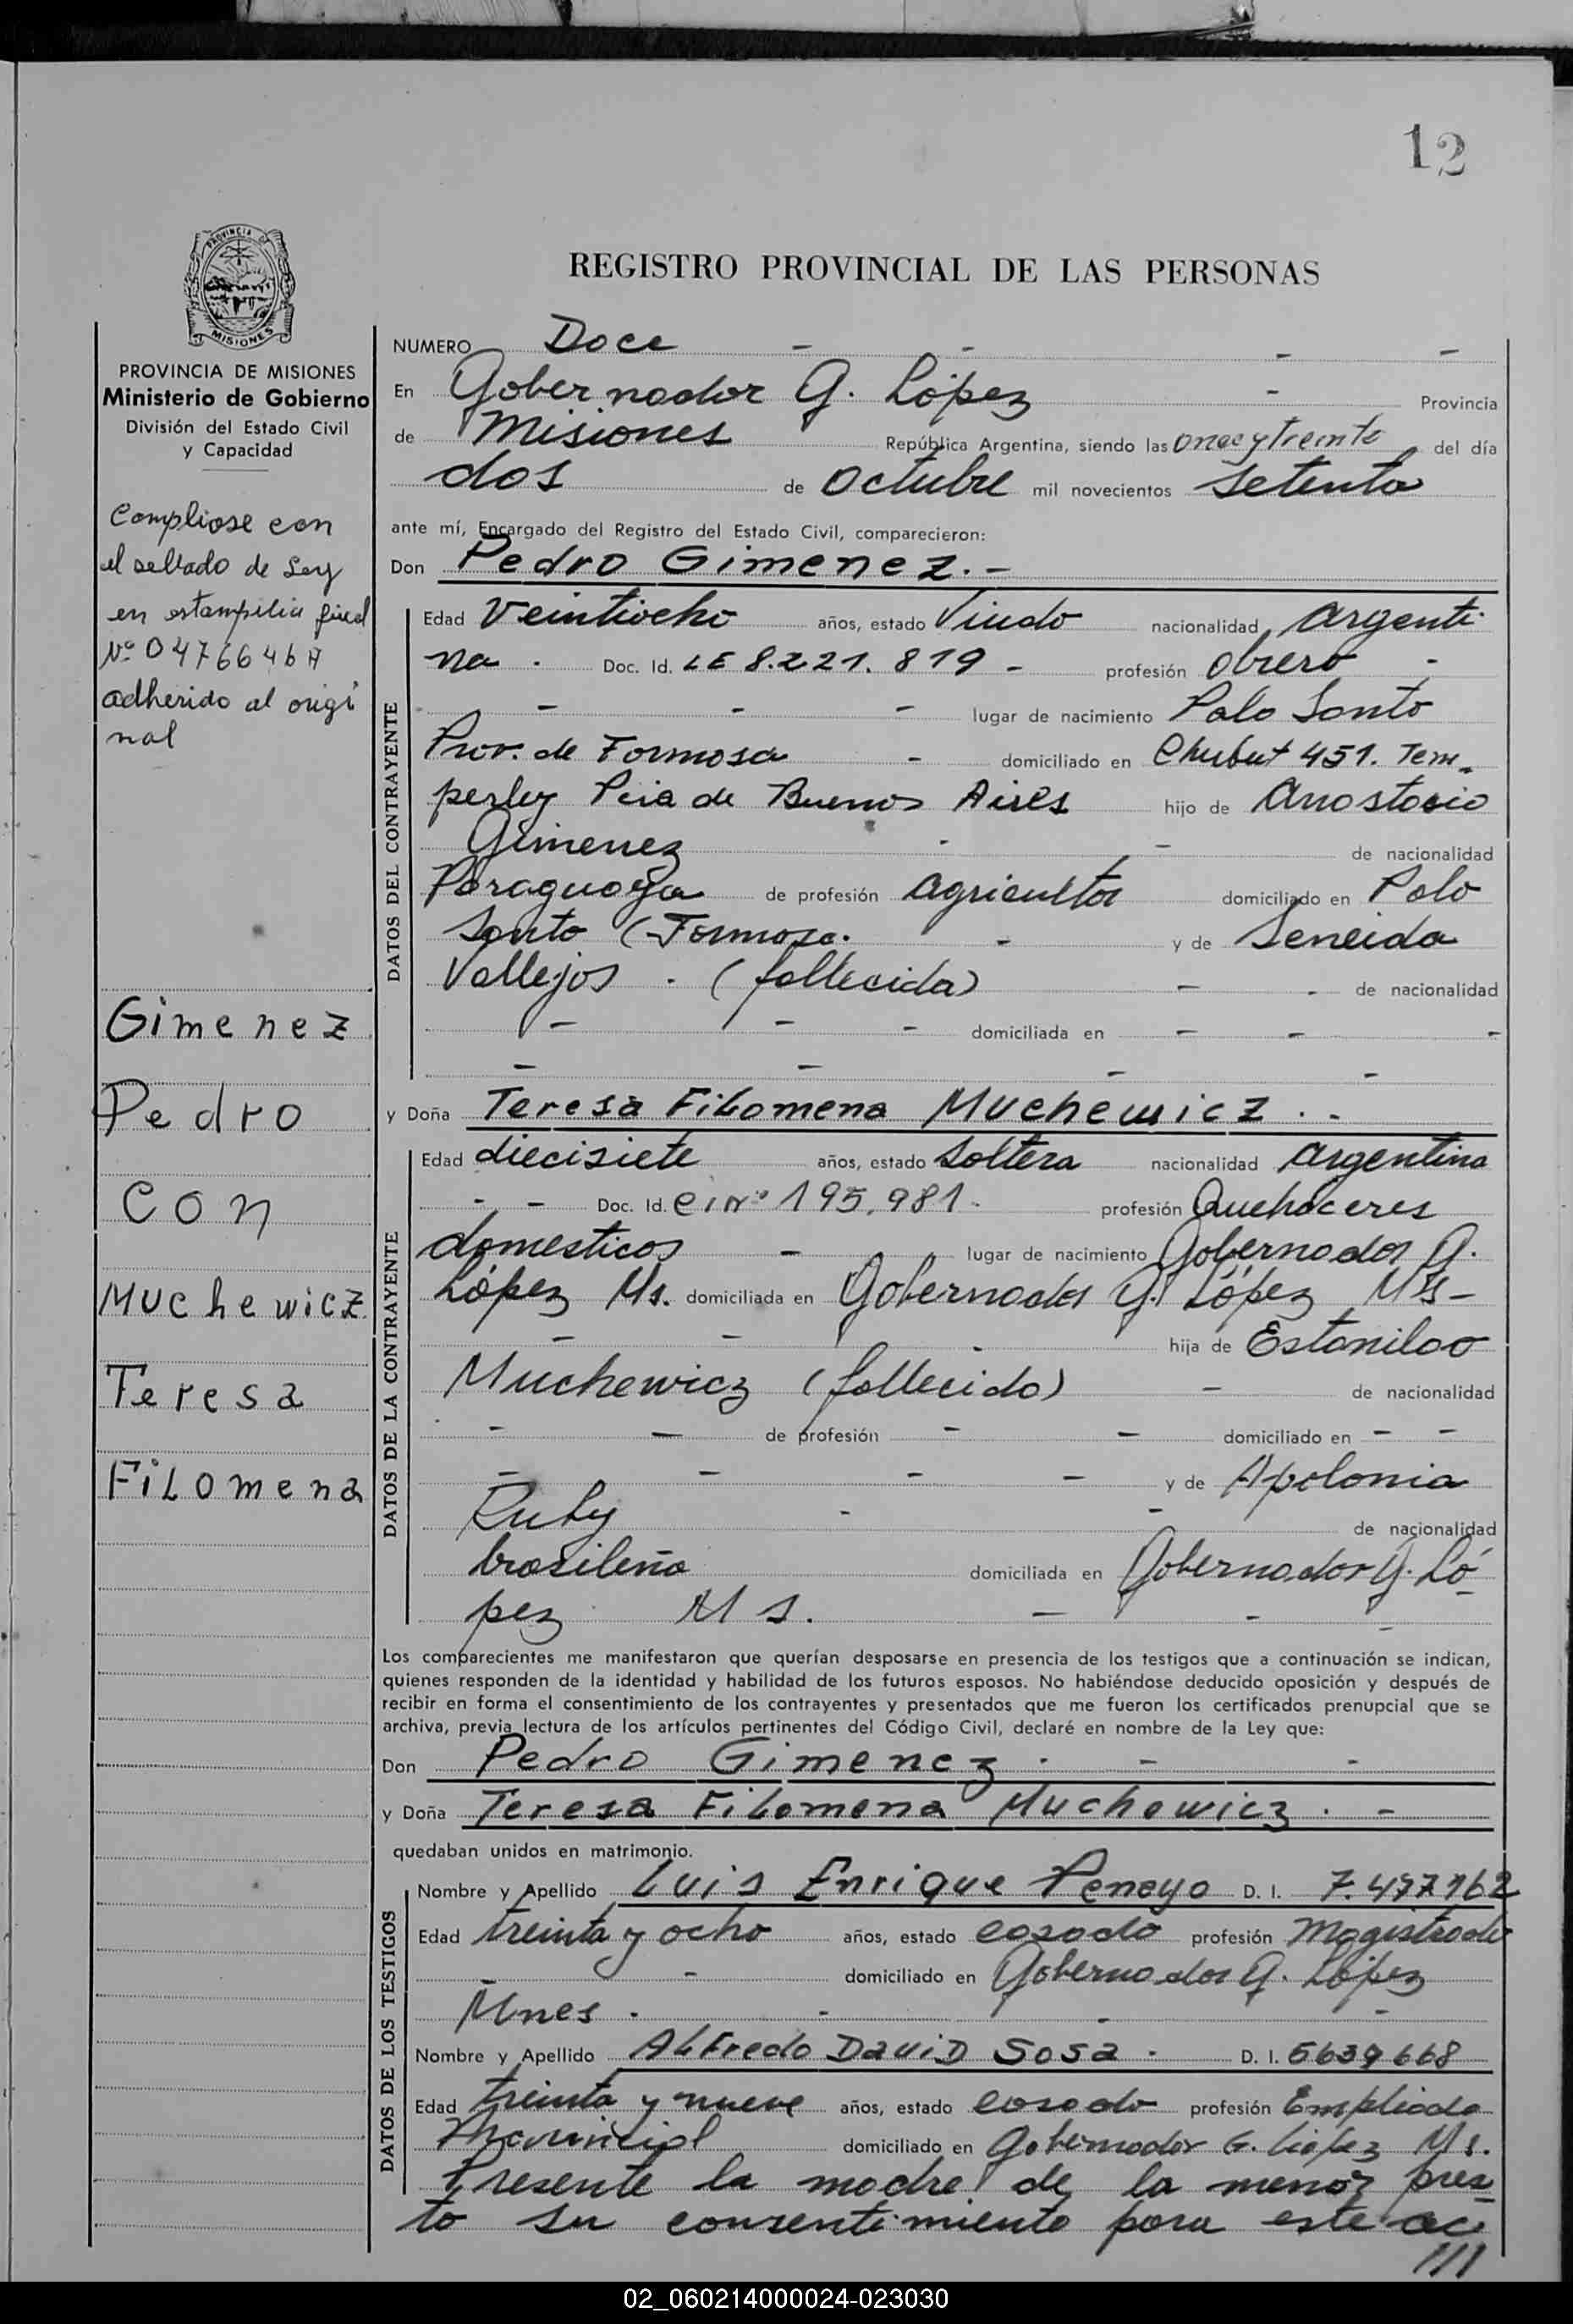 12
PROVINCIA DE
MISIONES
PROVINCIA DE MISIONES
Ministerio de Gobierno
División del Estado Civil
y Capacidad
Compliose con
el sellado de Ley
en estampilia fiscal
Nº 0476646A
adherido al origi
nal
Gimenez
Pedro
con
Muchewicz
Teresa
Filomena
REGISTRO PROVINCIAL DE LAS PERSONAS
NUMERO Doce - - - -
En Gobernador G. López - Provincia
de Misiones República Argentina, siendo las once y treinta del día
dos de Octubre mil novecientos setenta
ante mí, Encargado del Registro del Estado Civil, comparecieron:
Don Pedro Gimenez.-
DATOS DEL CONTRAYENTE
Edad Veintiocho años, estado Viudo nacionalidad Argenti-
na. Doc. Id. LE 8.221.819 - profesión Obrero -
- - - lugar de nacimiento Palo Santo
Prov. de Formosa - domiciliado en Chubut 451. Tem-
perley Pcia de Buenos Aires hijo de Anastacio
Gimenez - - de nacionalidad
Paraguaya de profesión Agricultor domiciliado en Palo
Santo (Formosa. - y de Seneida
Vallejos . (fallecida) - - de nacionalidad
- - - domiciliada en - - -
- - - -
y Doña Teresa Filomena Muchewicz . -
DATOS DE LA CONTRAYENTE
Edad diecisiete años, estado Soltera nacionalidad Argentina
- - Doc. Id. C I Nº 195.981 - profesión Quehaceres
domesticos - lugar de nacimiento Gobernador G.
López Ms. domiciliada en Gobernador G. López Ms-
- - - hija de Estanilao
Muchewicz (fallecido) - de nacionalidad
- - de profesión - - domiciliado en - -
- - - - y de Apolonia
Ruby - - de nacionalidad
brasileña domiciliada en Gobernador G. Ló-
pez Ms. - - -
Los comparecientes me manifestaron que querían desposarse en presencia de los testigos que a continuación se indican,
quienes responden de la identidad y habilidad de los futuros esposos. No habiéndose deducido oposición y después de
recibir en forma el consentimiento de los contrayentes y presentados que me fueron los certificados prenupcial que se
archiva, previa lectura de los artículos pertinentes del Código Civil, declaré en nombre de la Ley que:
Don Pedro Gimenez . - -
y Doña Teresa Filomena Muchewicz . -
quedaban unidos en matrimonio.
DATOS DE LOS TESTIGOS
Nombre y Apellido Luis Enrique Penayo D. I.
Edad treinta y ocho años, estado casado profesión Magistrado
- - domiciliado en Gobernador G. López
Mnes . - - -
Nombre y Apellido Alfredo David Sosa . D. I. 5639668
Edad treinta y nueve años, estado casado profesión Empleado
Provincial domiciliado en Gobernador G. López Ms.
Presente la madre de la menor pres-
to su consentimiento para este ac-
///
02_060214000024-023030